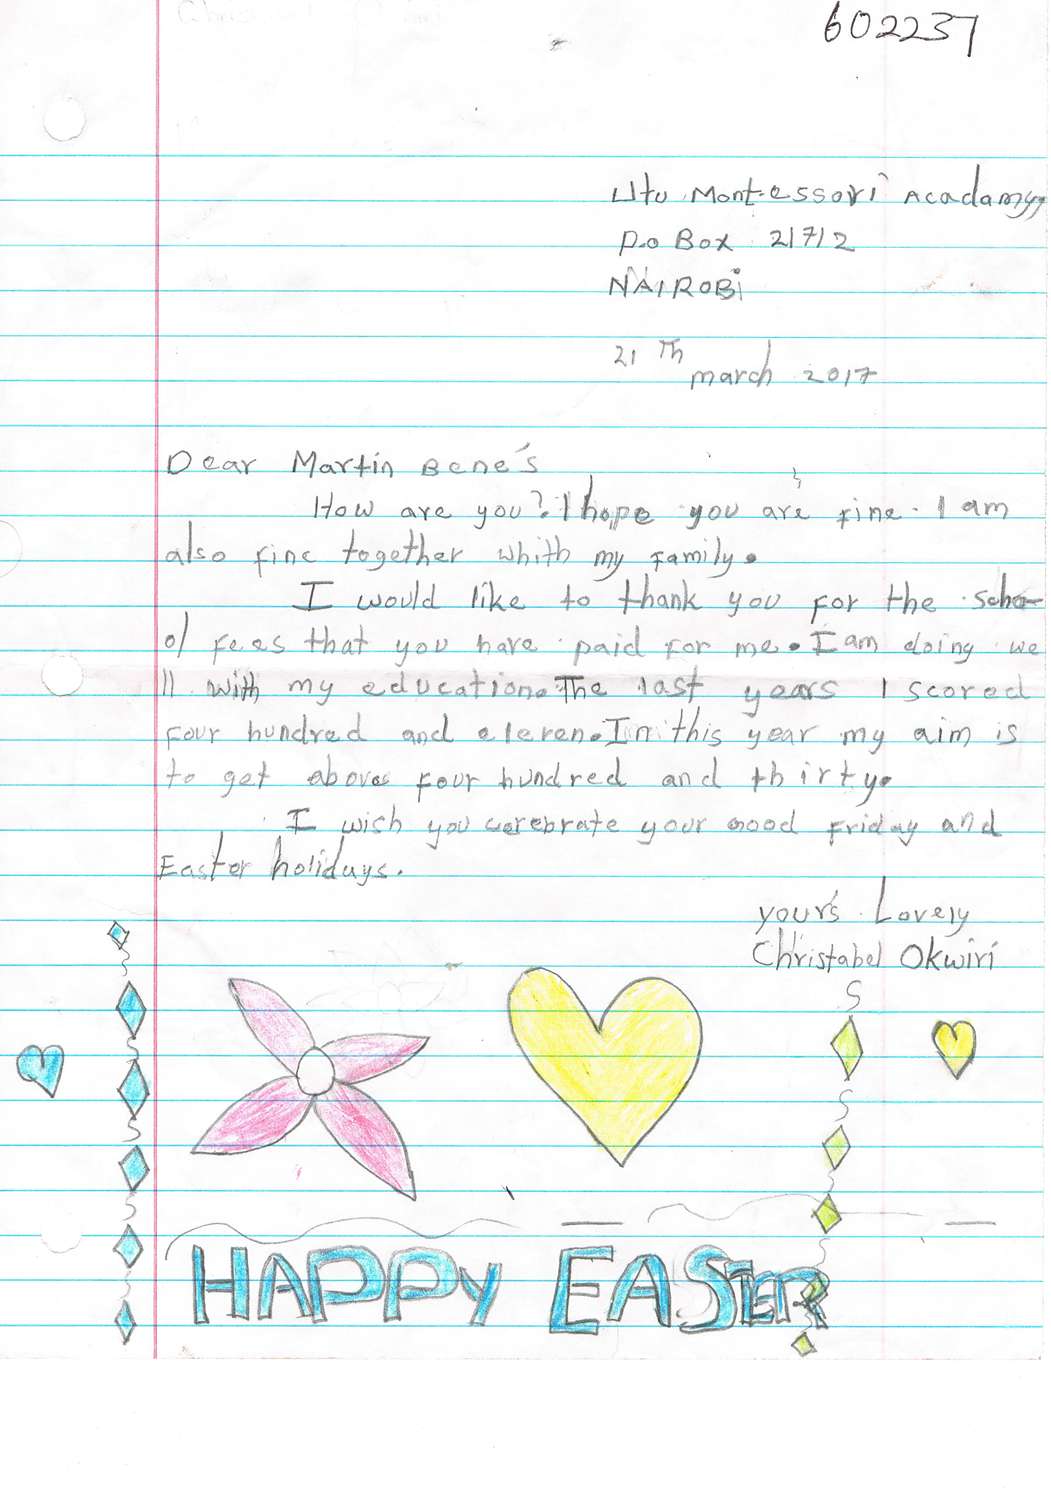 602237
Utu Montessori Acadamy
P.o Box 21712
NAIROBi
21 Th
march 2017
Dear Martin Bene's
How are you? I hope you are fine. I am
also fine together whith my family.
I would like to thank you for the scho-
ol fees that you have paid for me. I am doing we
ll with my education. The last years I scored
four hundred and eleven. In this year my aim is
to get above four hundred and thirty.
I wish you cerebrate your Good Friday and
Easter holidays.
your's Lovely
Christabel Okwiri
HAPPY EASTER